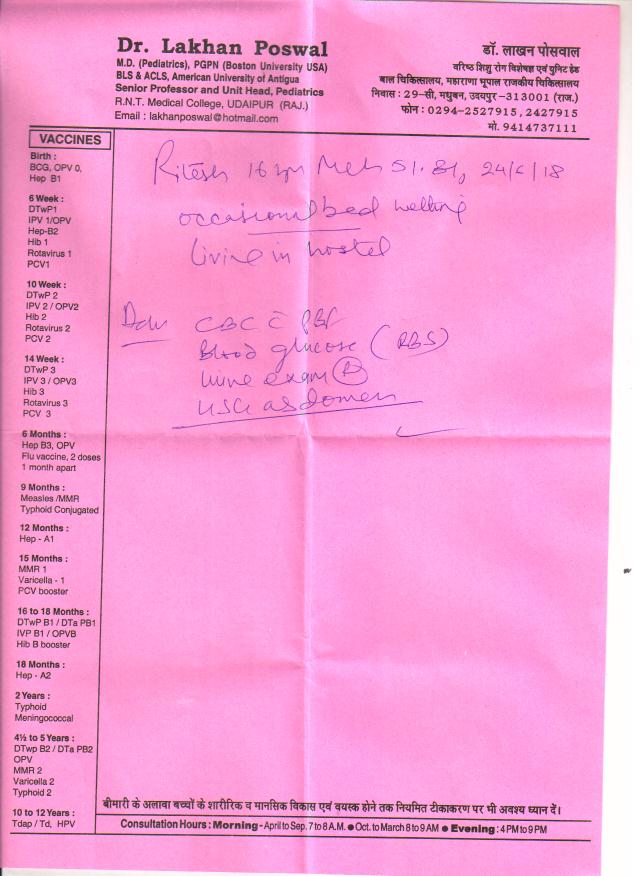 Dr. Lakhan Poswal
M.D. (Pediatrics), PGPN (Boston University USA)
BLS & ACLS, American University of Antigua
Senior Professor and Unit Head, Pediatrics
R.N.T. Medical College, UDAIPUR (RAJ.)
Email : lakhanposwal@hotmail.com
डॉ. लाखन पोसवाल
वरिष्ठ शिशु रोग विशेषज्ञ एवं युनिट हेड
बाल चिकित्सालय, महाराणा भूपाल राजकीय चिकित्सालय
निवास : 29-सी, मधुबन, उदयपुर-313001 (राज.)
फोन : 0294-2527915, 2427915
मो. 9414737111
VACCINES
Birth :
BCG, OPV 0,
Hep B1
6 Week :
DTwP1
IPV 1/OPV
Hep-B2
Hib 1
Rotavirus 1
PCV1
10 Week :
DTwP 2
IPV 2 / OPV2
Hib 2
Rotavirus 2
PCV 2
14 Week :
DTwP 3
IPV 3 / OPV3
Hib 3
Rotavirus 3
PCV 3
6 Months :
Hep B3, OPV
Flu vaccine, 2 doses
1 month apart
9 Months :
Measles /MMR
Typhoid Conjugated
12 Months :
Hep - A1
15 Months :
MMR 1
Varicella - 1
PCV booster
16 to 18 Months :
DTwP B1 / DTa PB1
IVP B1 / OPVB
Hib B booster
18 Months :
Hep - A2
2 Years :
Typhoid
Meningococcal
4½ to 5 Years :
DTwp B2 / DTa PB2
OPV
MMR 2
Varicella 2
Typhoid 2
10 to 12 Years :
Tdap / Td, HPV
Ritesh 16 yr 24/6/18
occasional bed wetting
living in hostel
CBC c PBF
Blood glucose (RBS)
urine exam R
USG abdomen
बीमारी के अलावा बच्चों के शारीरिक व मानसिक विकास एवं वयस्क होने तक नियमित टीकाकरण पर भी अवश्य ध्यान दें।
Consultation Hours : Morning - April to Sep. 7 to 8 A.M. ● Oct. to March 8 to 9 AM ● Evening : 4 PM to 9 PM